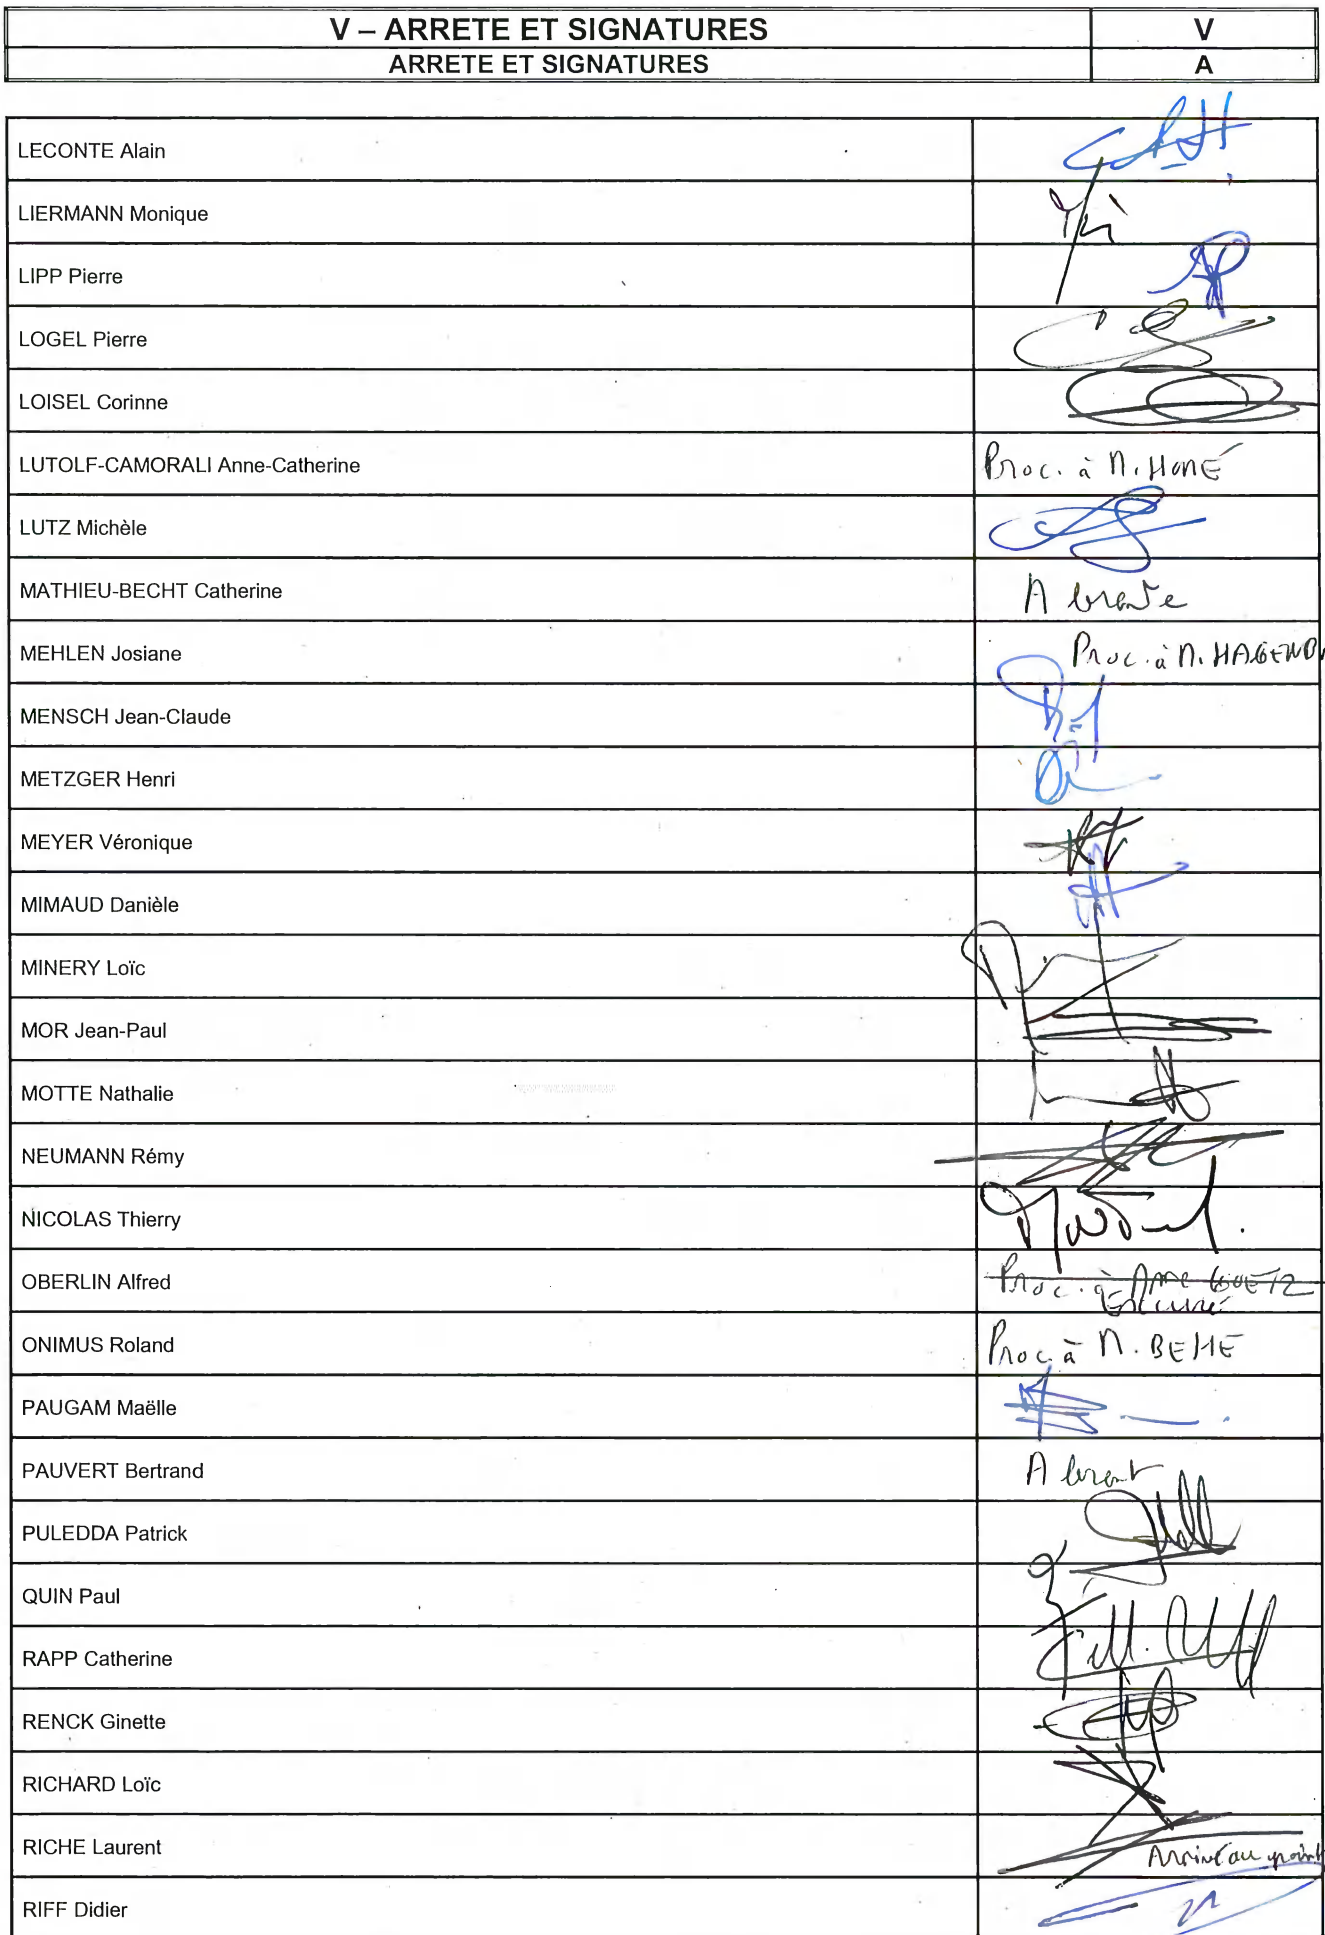 V – ARRETE ET SIGNATURES V
ARRETE ET SIGNATURES A
LECONTE Alain
LIERMANN Monique
LIPP Pierre
LOGEL Pierre
LOISEL Corinne
LUTOLF-CAMORALI Anne-Catherine Proc. à M. HOMÉ
LUTZ Michèle
MATHIEU-BECHT Catherine Absente
MEHLEN Josiane Proc. à M. HAGENB
MENSCH Jean-Claude
METZGER Henri
MEYER Véronique
MIMAUD Danièle
MINERY Loïc
MOR Jean-Paul
MOTTE Nathalie
NEUMANN Rémy
NICOLAS Thierry
OBERLIN Alfred Proc. à Mme GOETZ
Excusé
ONIMUS Roland Proc. à M. BEHE
PAUGAM Maëlle
PAUVERT Bertrand Absent
PULEDDA Patrick
QUIN Paul
RAPP Catherine
RENCK Ginette
RICHARD Loïc
RICHE Laurent Arrivé au point
RIFF Didier